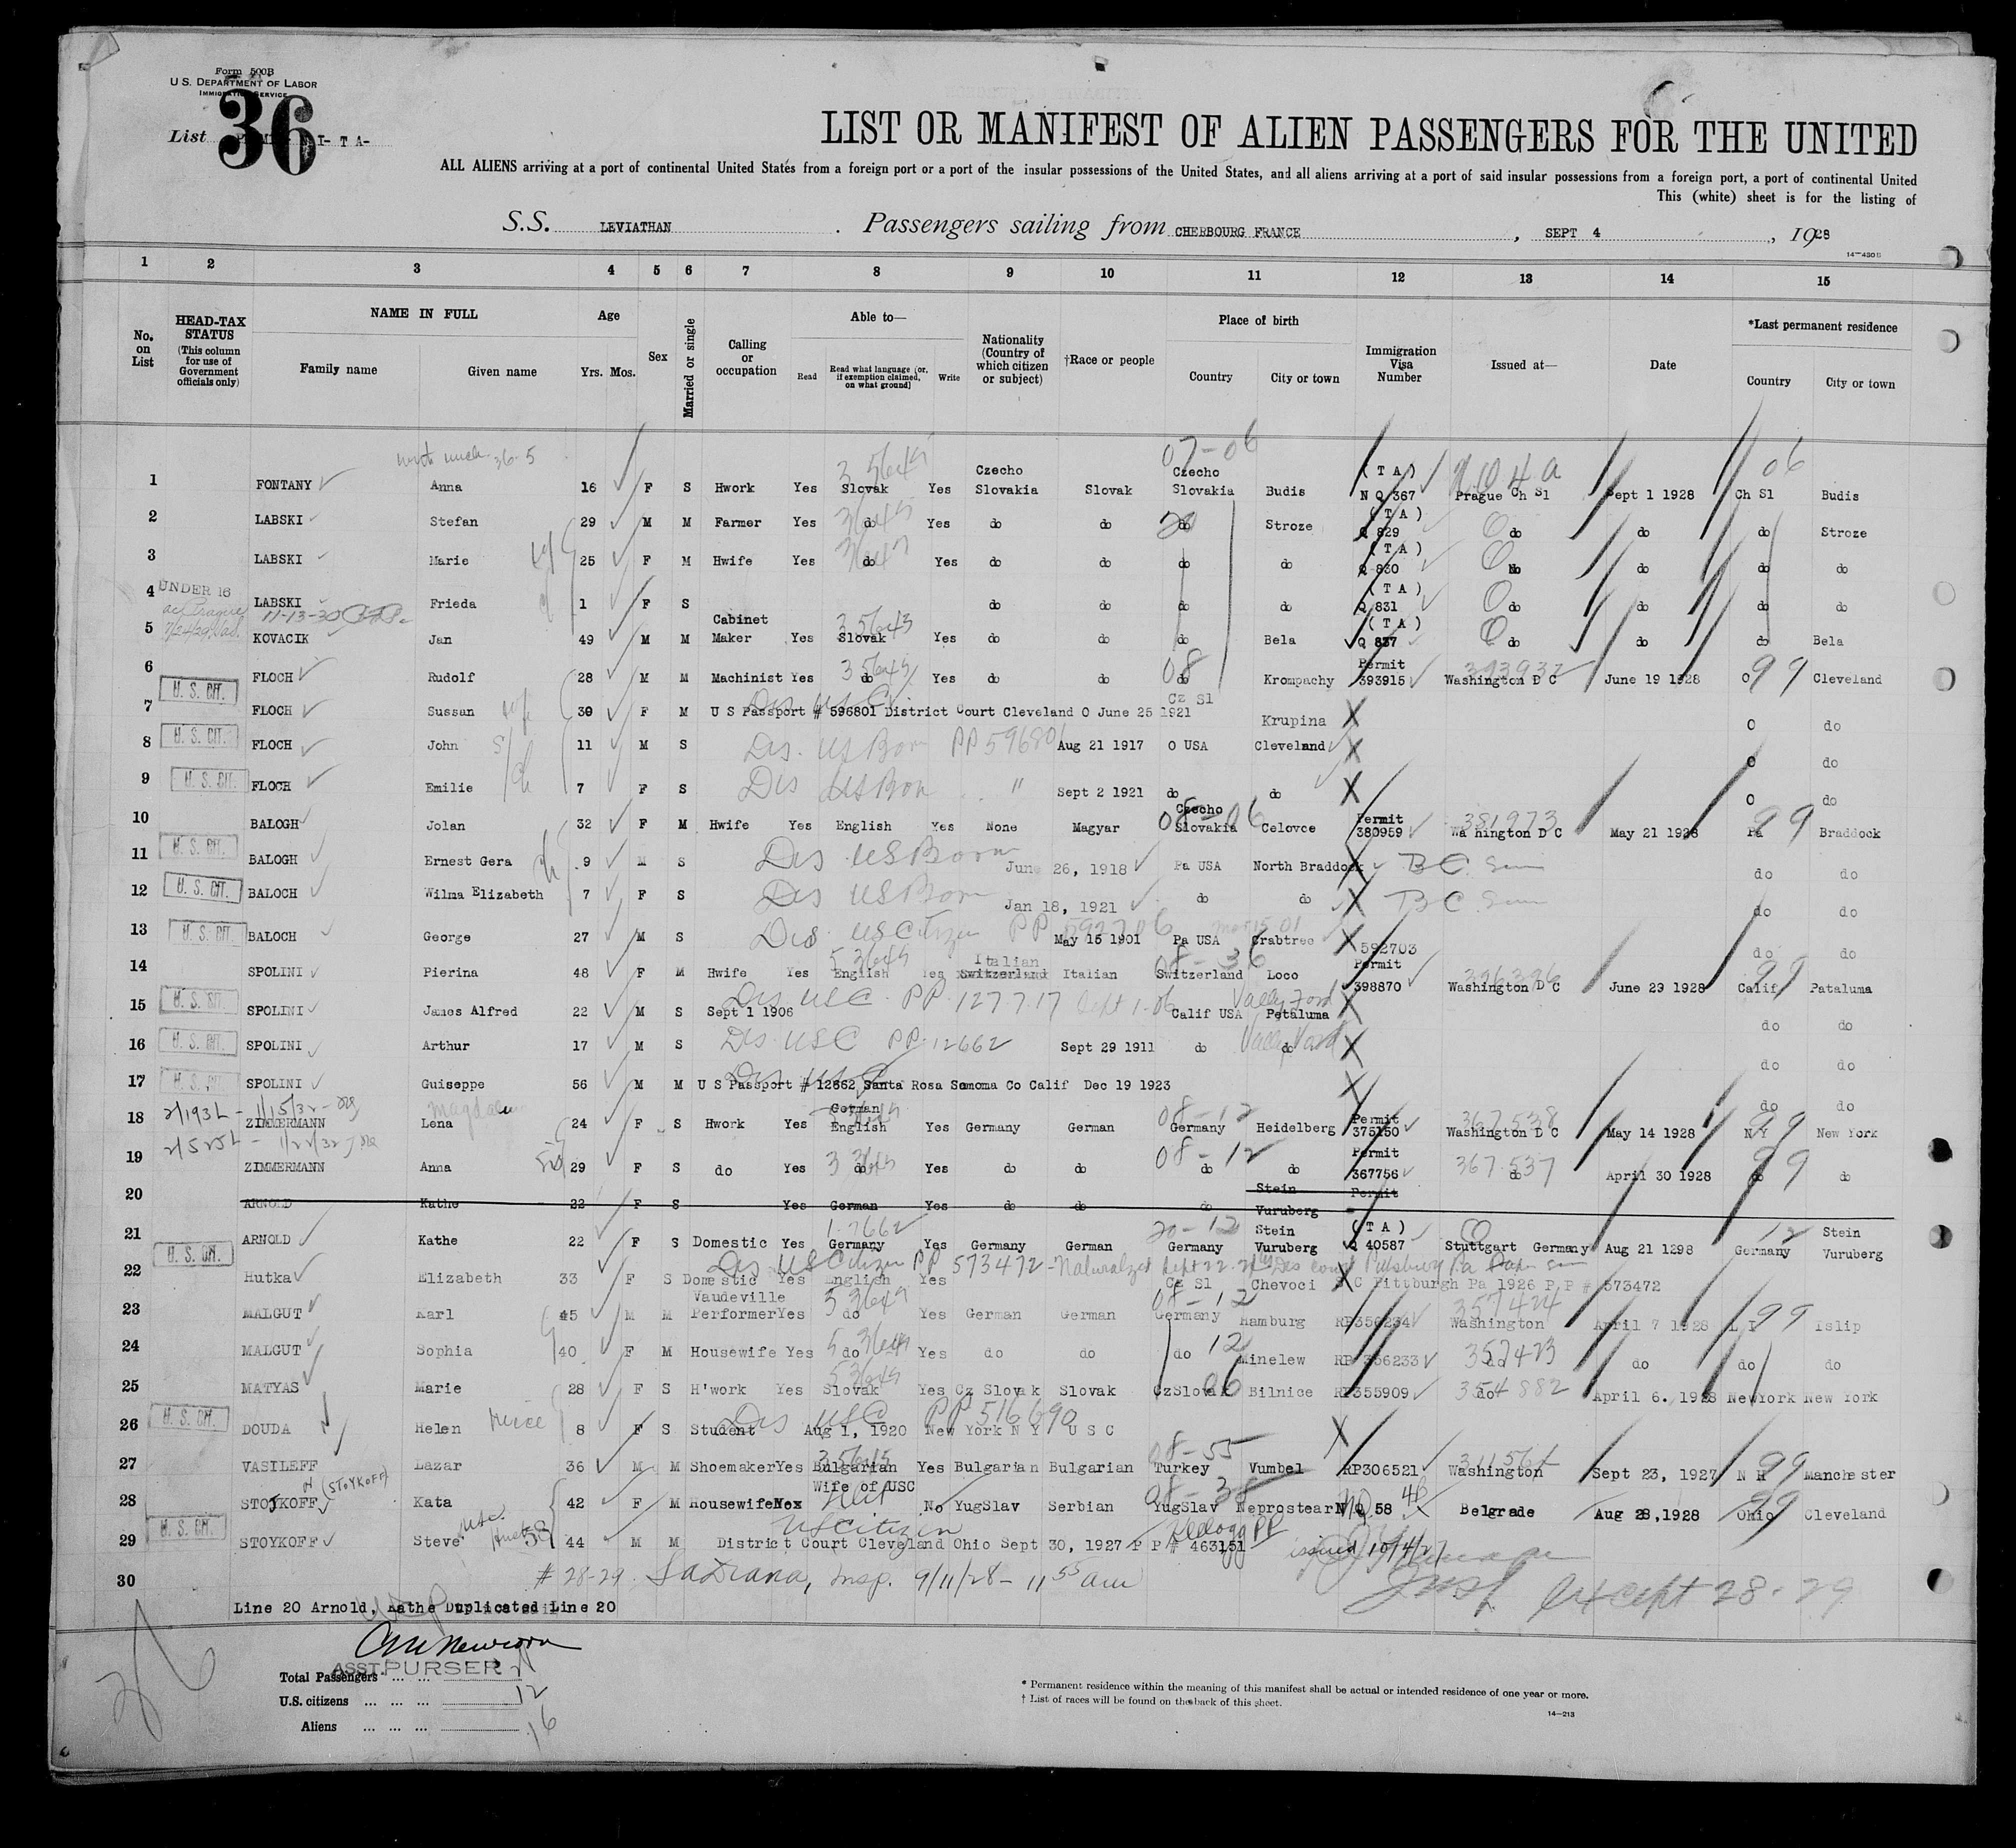 Form 500B
U. S. DEPARTMENT OF LABOR
IMMIGRATION SERVICE
List 36 I- T A-
LIST OR MANIFEST OF ALIEN PASSENGERS FOR THE UNITED
ALL ALIENS arriving at a port of continental United States from a foreign port or a port of the insular possessions of the United States, and all aliens arriving at a port of said insular possessions from a foreign port, a port of continental United
This (white) sheet is for the listing of
S.S. LEVIATHAN . Passengers sailing from CHERBOURG FRANCE , SEPT 4 , 1928
14—480 B
1 2 3 4 5 6 7 8 9 10 11 12 13 14 15
No. on List
HEAD-TAX STATUS (This column for use of Government officials only)
NAME IN FULL
Family name Given name
Age
Yrs. Mos.
Sex
Married or single
Calling or occupation
Able to—
Read
Read what language [or, if exemption claimed, on what ground]
Write
Nationality (Country of which citizen or subject)
†Race or people
Place of birth
Country City or town
Immigration Visa Number
Issued at—
Date
*Last permanent residence
Country City or town
07-06
1 FONTANY Anna 16 F S Hwork Yes Slovak Yes Czecho Slovakia Slovak Czecho Slovakia Budis (T A) N Q 367 Prague Ch Sl Sept 1 1928 Ch Sl Budis
2 LABSKI Stefan 29 M M Farmer Yes do Yes do do do Stroze (T A) Q 829 do do do Stroze
3 LABSKI Marie 25 F M Hwife Yes do Yes do do do do (T A) Q 830 do do do do
UNDER 16
4 LABSKI Frieda 1 F S do do do do (T A) Q 831 do do do do
5 KOVACIK Jan 49 M M Cabinet Maker Yes Slovak Yes do do do Bela (T A) Q 837 do do do Bela
6 FLOCH Rudolf 28 M M Machinist Yes do Yes do do do Krompachy Permit 393915 Washington D C June 19 1928 O 99 Cleveland
U. S. CIT.
7 FLOCH Sussan 30 F M U S Passport # 596801 District Court Cleveland O June 25 1921 Cz Sl Krupina X O do
U. S. CIT.
8 FLOCH John 11 M S Dis. US Born PP 596801 Aug 21 1917 O USA Cleveland X O do
U. S. CIT.
9 FLOCH Emilie 7 F S Dis US Born " Sept 2 1921 do do X O do
10 BALOGH Jolan 32 F M Hwife Yes English Yes None Magyar Czecho Slovakia Celovce Permit 380959 381973 Wa hington D C May 21 1928 Pa 99 Braddock
U. S. CIT.
11 BALOGH Ernest Gera 9 M S Dis US Born June 26, 1918 Pa USA North Braddock X B C do do
U. S. CIT.
12 BALOCH Wilma Elizabeth 7 F S Dis US Born Jan 18, 1921 do do X B C do do
U. S. CIT.
13 BALOCH George 27 M S Dis. US Citizen PP 592706 May 15 1901 Pa USA Crabtree X 592703 do do
14 SPOLINI Pierina 48 F M Hwife Yes English Yes Italian Switzerland Italian Switzerland Loco Permit 398870 396396 Washington D C June 29 1928 Calif 99 Pataluma
U. S. CIT.
15 SPOLINI James Alfred 22 M S Sept 1 1906 Dis USC PP 127717 Sept 1-06 Calif USA Valley Ford Petaluma X do do
U. S. CIT.
16 SPOLINI Arthur 17 M S Dis. USC PP. 12662 Sept 29 1911 do do Valley Ford X do do
U. S. CIT.
17 SPOLINI Guiseppe 56 M M U S Passport # 12662 Santa Rosa Somoma Co Calif Dec 19 1923 X do do
18 ZIMMERMANN Lena Magdalena 24 F S Hwork Yes German English Yes Germany German Germany Heidelberg Permit 375150 367538 Washington D C May 14 1928 N Y 99 New York
19 ZIMMERMANN Anna 29 F S do Yes do Yes do do do do Permit 367756 367537 do April 30 1928 do 99 do
20 ARNOLD Kathe 22 F S Yes German Yes do do do Stein Vuruberg Permit
21 ARNOLD Kathe 22 F S Domestic Yes Germany Yes Germany German Germany Stein Vuruberg (T A) Q 40587 Stuttgart Germany Aug 21 1298 Germany Stein Vuruberg
U. S. CIT.
22 Hutka Elizabeth 33 F S Domestic Yes English Yes Dis US Citizen PP 573472 - Naturalized Cz Sl Chevoci X C Pittburgh Pa 1926 P.P # 573472
23 MALGUT Karl 45 M M Vaudeville Performer Yes do Yes German German Germany Hamburg RP356234 357424 Washington April 7 1928 L I 99 Islip
24 MALGUT Sophia 40 F M Housewife Yes do Yes do do do Minelew RP 356233 357423 do do do do
25 MATYAS Marie 28 F S H'work Yes Slovak Yes Cz Slovak Slovak CzSlovak Bilnice RP355909 354882 do April 6. 1928 NewYork New York
U. S. CIT.
26 DOUDA Helen niece 8 F S Student Dis USC PP 516690 Aug 1, 1920 New York N Y U S C X
27 VASILEFF Lazar 36 M M Shoemaker Yes Bulgarian Yes Bulgarian Bulgarian Turkey Vumbel RP306521 Washington Sept 23, 1927 N H 99 Manchester
28 STOJKOFF (STOYKOFF) Kata 42 F M Housewife Wife of USC No YugSlav Serbian YugSlav Neprostear N Q 58 Belgrade Aug 28,1928 Ohio 99 Cleveland
U. S. CIT.
29 STOYKOFF Steve 44 M M US Citizen District Court Cleveland Ohio Sept 30, 1927 P P # 463151 Kellogg PP issued 10/4/27
30 # 28-29. LaDiana, Insp. 9/11/28 - 11 55 am
Insp except 28-29
Line 20 Arnold, Kathe Duplicated Line 20
ASST. PURSER
Total Passengers
U.S. citizens 12
Aliens 16
* Permanent residence within the meaning of this manifest shall be actual or intended residence of one year or more.
† List of races will be found on the back of this sheet.
14—213